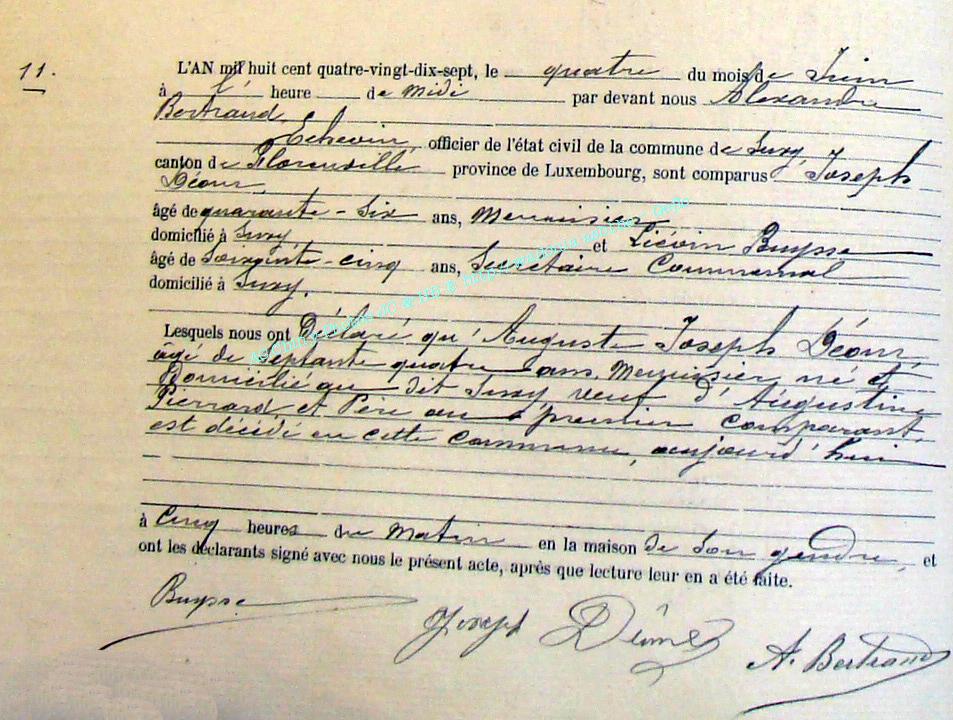 11.
L'AN mil huit cent quatre-vingt-dix-sept, le quatre du mois de Juin
à l' heure de midi par devant nous Alexandre
Bertrand,
Echevin, officier de l'état civil de la commune de Suxy,
canton de Florenville province de Luxembourg, sont comparus Joseph
âgé de quarante-six ans, Menuisier
domicilié à Suxy, et Liévin Buysse
âgé de Soixante-cinq ans, Secrétaire Communal
domicilié à Suxy.
Lesquels nous ont Déclaré qu'Auguste Joseph
âgé de Septante quatre ans, Menuisier né et
Domicilié au dit Suxy, veuf d'Augustine
Pierrard, et Père au premier comparant,
est décédé en cette commune, aujourd'hui
à Cinq heures du Matin en la maison de son gendre, et
ont les déclarants signé avec nous le présent acte, après que lecture leur en a été faite.
Buysse
Joseph
A. Bertrand